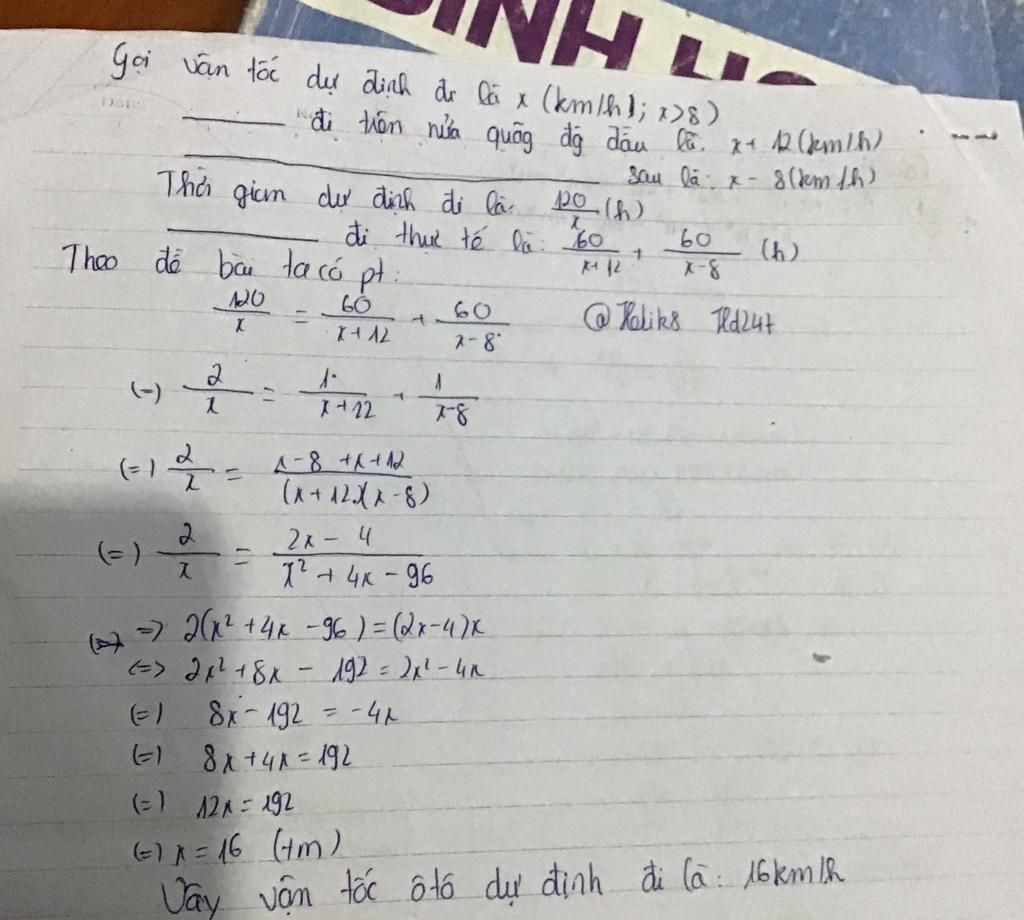 SINH HỌ
Gọi vận tốc dự định đi là x (km/h); x>8)
_____ đi trên nửa quãng đg đầu là: x+ 12(km/h)
_____ sau là: x - 8(km/h)
Thời gian dự định đi là: 120/x (h)
_____ đi thực tế là: 60/x+12 + 60/x-8 (h)
Theo đề bài ta có pt:
120/x = 60/x+12 + 60/x-8 @
(=) 2/x = 1/x+12 + 1/x-8
(=) 2/x = x-8+x+12/(x+12)(x-8)
(=) 2/x = 2x-4/x²+4x-96
=> 2(x²+4x-96)=(2x-4)x
<=> 2x²+8x-192=2x²-4x
(=) 8x-192=-4x
(=) 8x+4x=192
(=) 12x=192
(=) x=16 (tm)
Vậy vận tốc ôtô dự định đi là: 16km/h